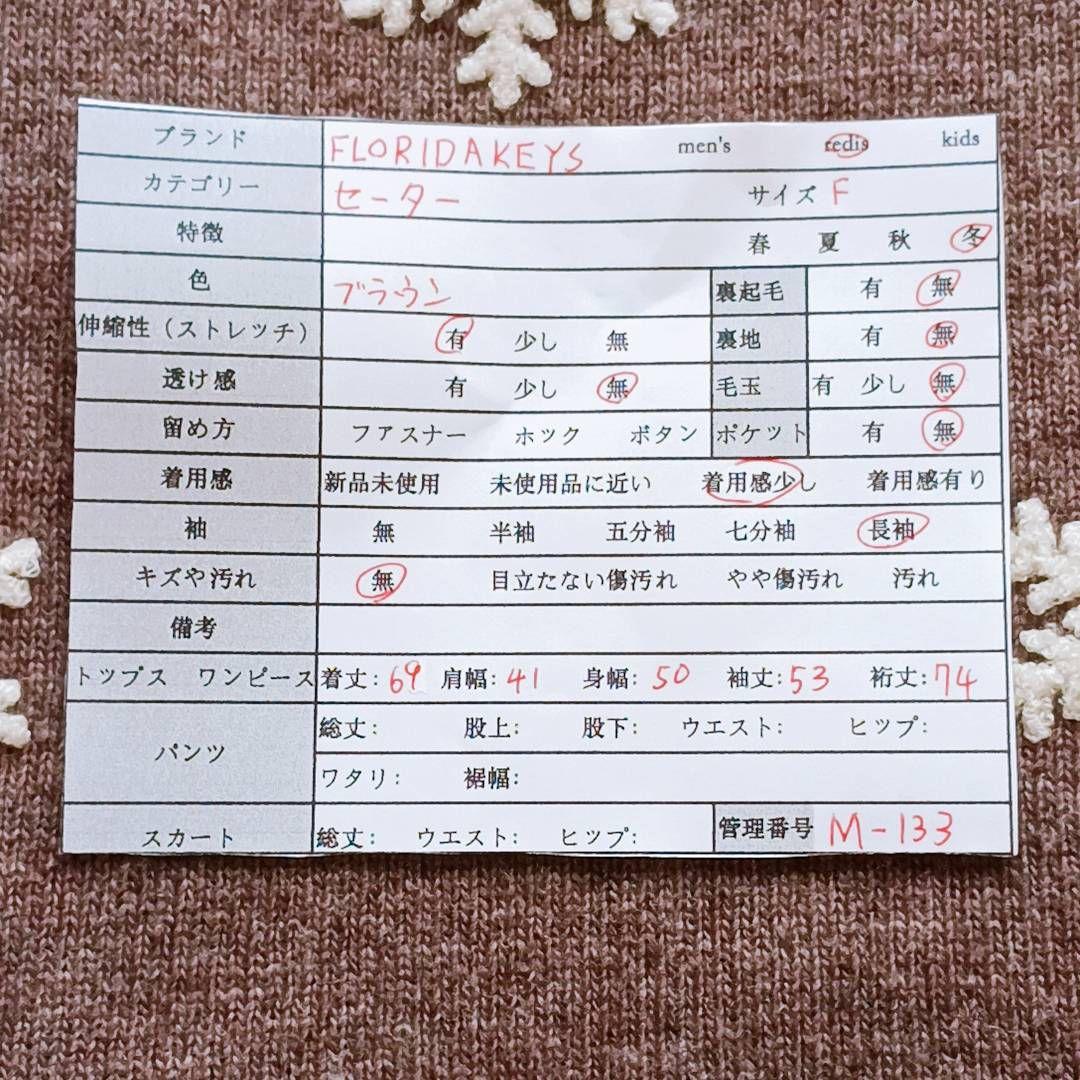 ブランド FLORIDAKEYS men's redis kids
カテゴリー セーター サイズ F
特徴 春 夏 秋 冬
色 ブラウン 裏起毛 有 無
伸縮性（ストレッチ） 有 少し 無 裏地 有 無
透け感 有 少し 無 毛玉 有 少し 無
留め方 ファスナー ホック ボタン ポケット 有 無
着用感 新品未使用 未使用品に近い 着用感少し 着用感有り
袖 無 半袖 五分袖 七分袖 長袖
キズや汚れ 無 目立たない傷汚れ やや傷汚れ 汚れ
備考
トップス ワンピース 着丈: 69 肩幅: 41 身幅: 50 袖丈: 53 裄丈: 74
パンツ 総丈: 股上: 股下: ウエスト: ヒップ:
ワタリ: 裾幅:
スカート 総丈: ウエスト: ヒップ: 管理番号 M-133